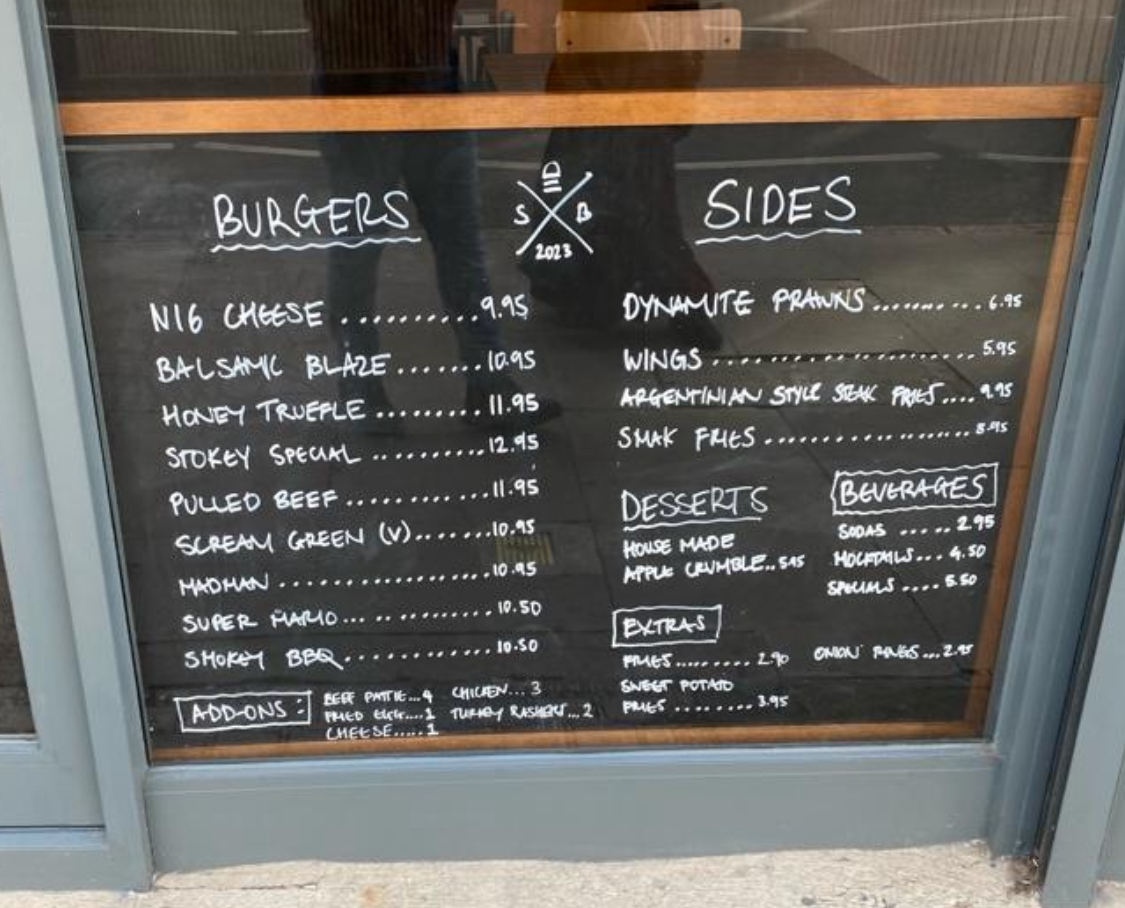 BURGERS
S B
2023
N16 CHEESE ..........9.95
BALSAMIC BLAZE.......10.95
HONEY TRUFFLE.........11.95
STOKEY SPECIAL ..........12.95
PULLED BEEF............11.95
SCREAM GREEN (V).......10.95
MADMAN .................10.95
SUPER MARIO... ..........10.50
SMOKEY BBQ.............10.50
ADD-ONS:
BEEF PATTIE...4 CHICKEN...3
FRIED EGG....1 TURKEY RASHERS...2
CHEESE.....1
SIDES
DYNAMITE PRAWNS..........6.95
WINGS......................5.95
ARGENTINIAN STYLE STEAK FRIES....9.95
SMAK FRIES ...................
DESSERTS
HOUSE MADE
APPLE CRUMBLE..
BEVERAGES
SODAS .....2.95
MOCKTAILS...4.50
SPECIALS ....5.50
EXTRAS
FRIES.........2.90 ONION RINGS...2.95
SWEET POTATO
FRIES ........3.95